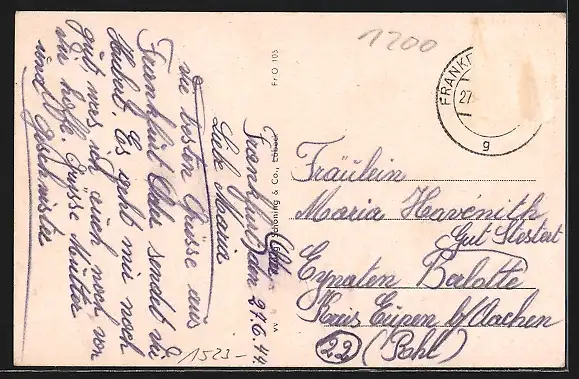 1200
FRANKF
27.
g
Frankfurt/Oder
den 27.6.44
Liebe Maria
die besten Grüsse aus
Frankfurt Oder sendet dir
Hubert. Es geht mir noch
gut was ich auch noch von
dir hoffe. Grüsse Mutter
und Geschwister
1523-
Schöning & Co., Lübeck
Fr O 105
Fräulein
Maria Havenith
Gut
Eynaten Berlotte
Kreis Eupen b/Aachen
22 (Rhl)